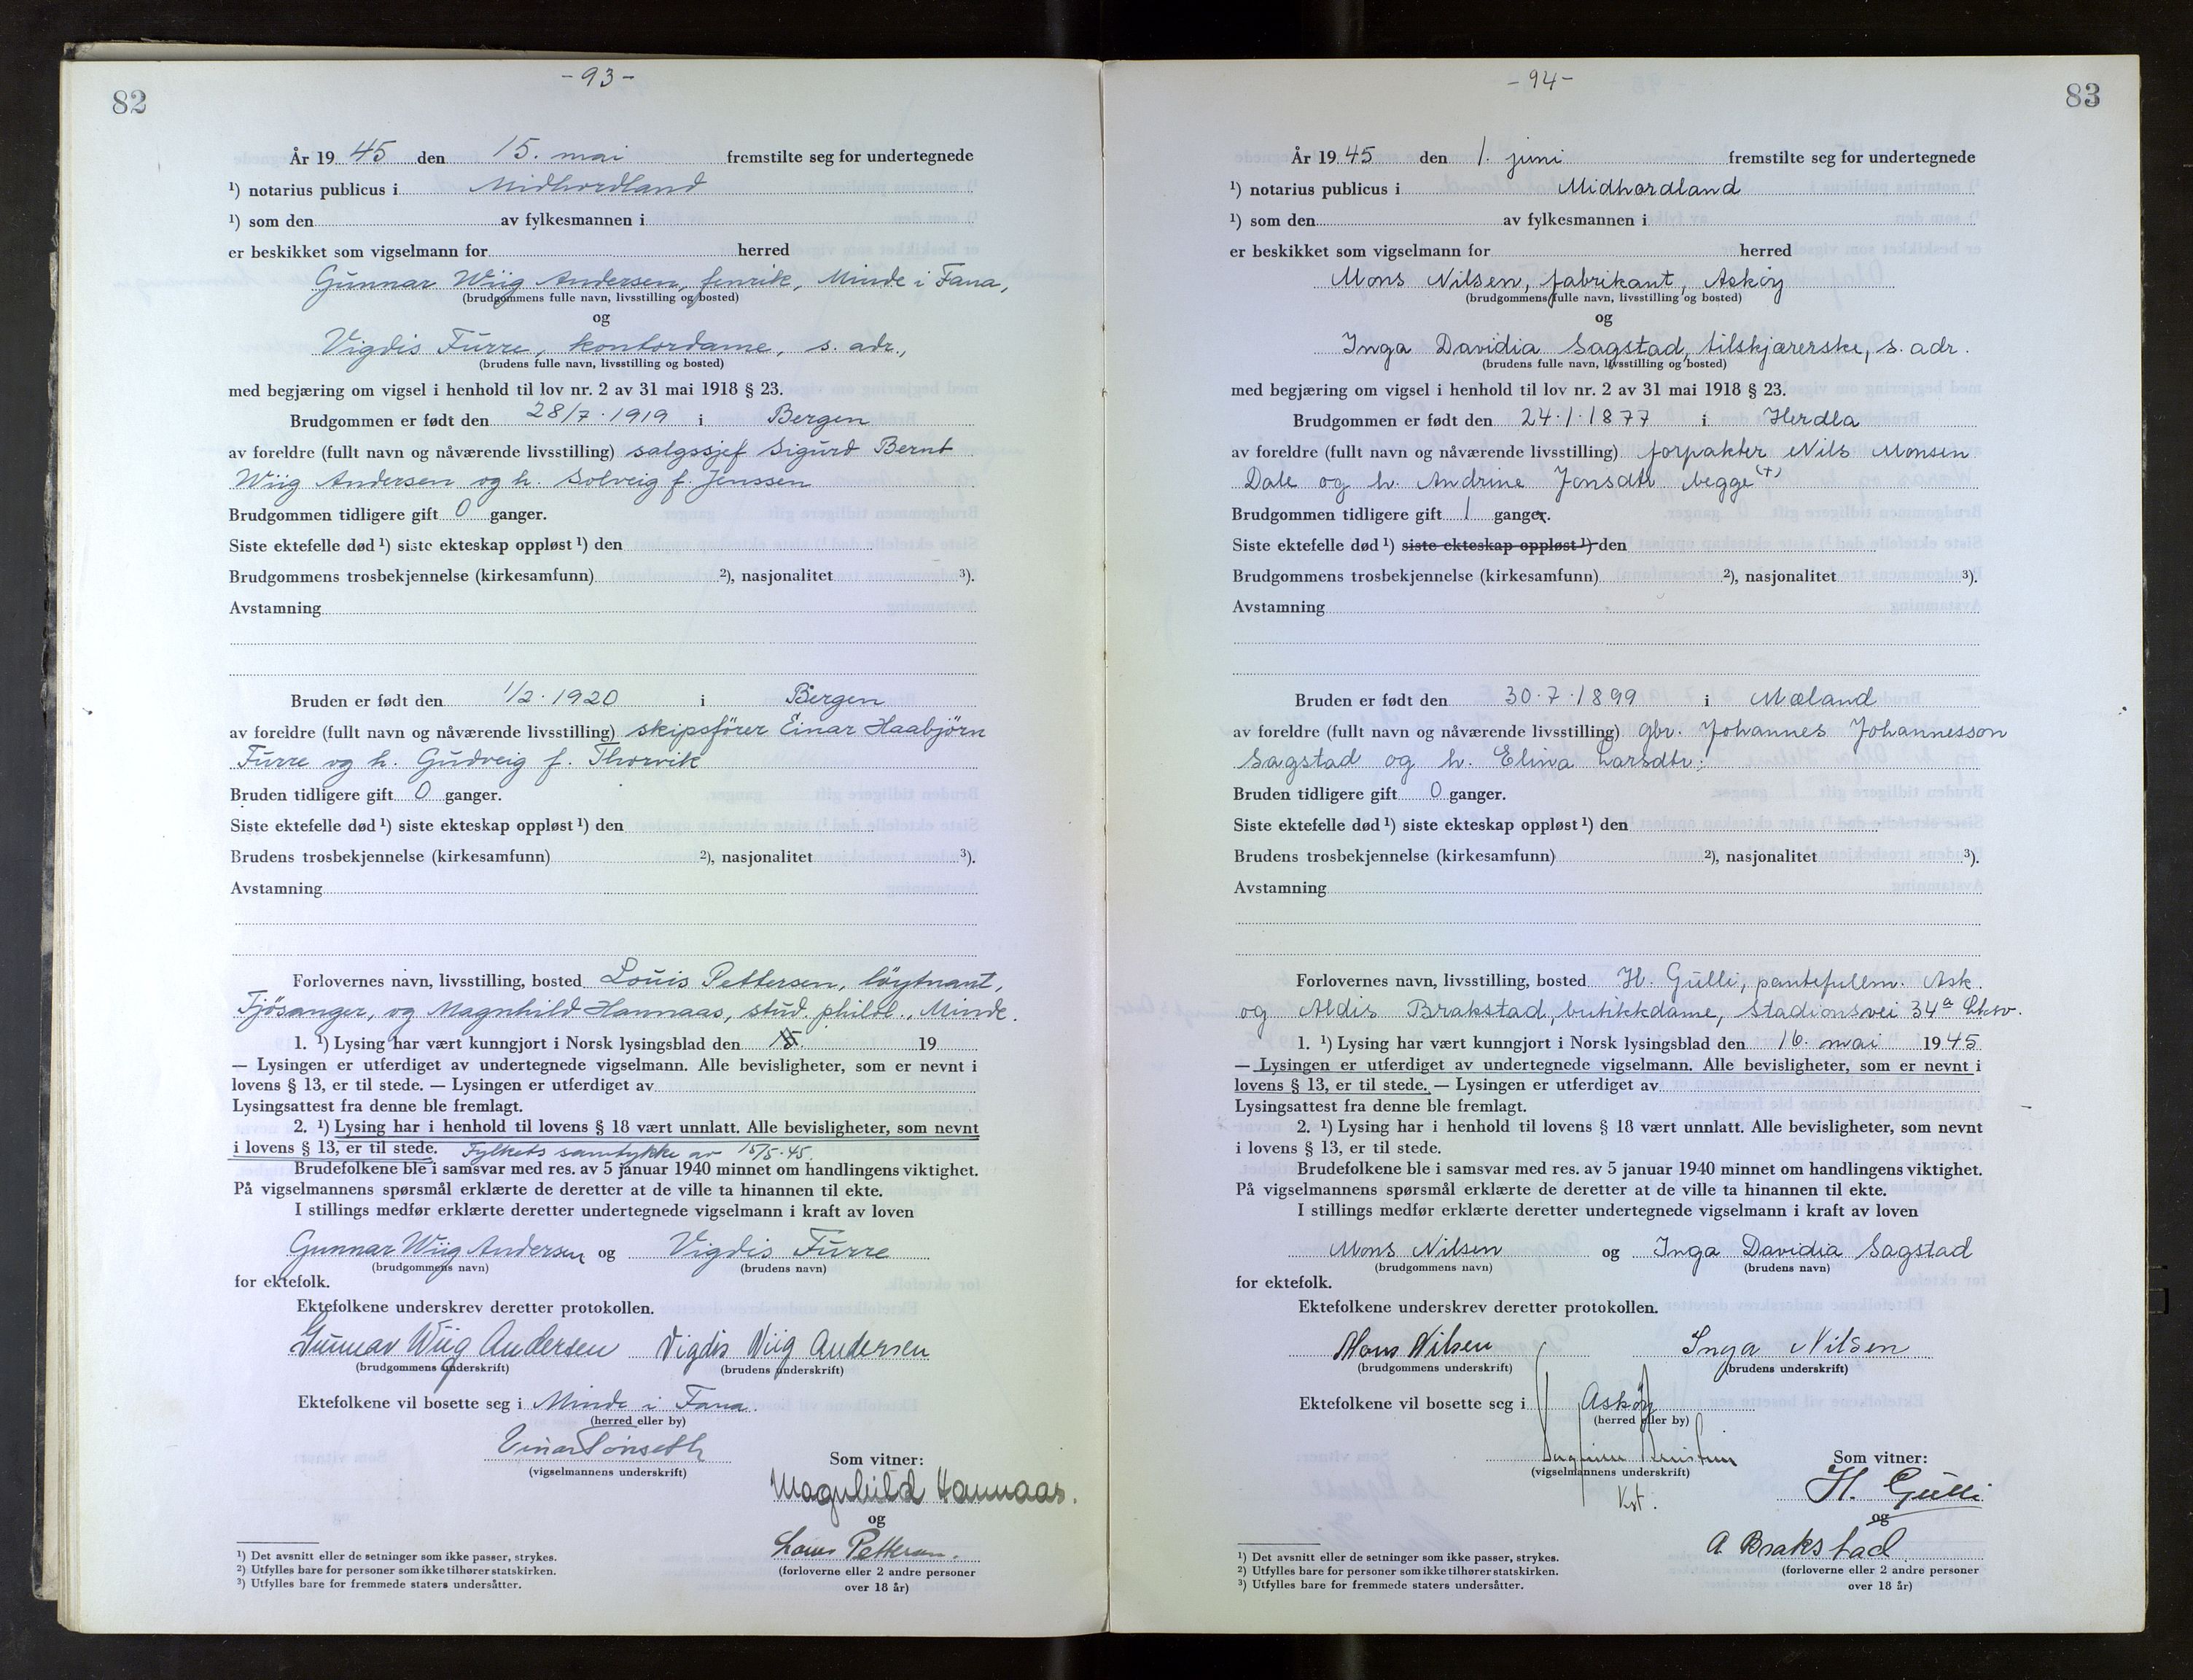 82
-93-
År 1945 den 15. mai fremstilte seg for undertegnede
¹) notarius publicus i Midhordland
¹) som den av fylkesmannen i
er beskikket som vigselmann for herred
Gunnar Wiig Andersen, fenrik, Minde i Fana,
(brudgommens fulle navn, livsstilling og bosted)
og
Vigdis Furre, kontordame, s. adr.,
(brudens fulle navn, livsstilling og bosted)
med begjæring om vigsel i henhold til lov nr. 2 av 31 mai 1918 § 23.
Brudgommen er født den 28/7.1919 i Bergen
av foreldre (fullt navn og nåværende livsstilling) salgssjef Sigurd Bernt
Wiig Andersen og h. Solveig f. Jenssen
Brudgommen tidligere gift 0 ganger.
Siste ektefelle død ¹) siste ekteskap oppløst ¹) den
Brudgommens trosbekjennelse (kirkesamfunn) ²), nasjonalitet ³).
Avstamning
Bruden er født den 1/2.1920 i Bergen
av foreldre (fullt navn og nåværende livsstilling) skipsfører Einar Haabjörn
Furre og h. Gudveig f. Thorvik
Bruden tidligere gift 0 ganger.
Siste ektefelle død ¹) siste ekteskap oppløst ¹) den
Brudens trosbekjennelse (kirkesamfunn) ²), nasjonalitet ³).
Avstamning
Forlovernes navn, livsstilling, bosted Louis Pettersen, löytnant,
Fjösanger, og Magnhild Hannaas, stud. philol., Minde.
1. ¹) Lysing har vært kunngjort i Norsk lysingsblad den 15. 19
— Lysingen er utferdiget av undertegnede vigselmann. Alle bevisligheter, som er nevnt i
lovens § 13, er til stede. — Lysingen er utferdiget av
Lysingsattest fra denne ble fremlagt.
2. ¹) Lysing har i henhold til lovens § 18 vært unnlatt. Alle bevisligheter, som nevnt
i lovens § 13, er til stede. Fylkets samtykke av 15/5.45.
Brudefolkene ble i samsvar med res. av 5 januar 1940 minnet om handlingens viktighet.
På vigselmannens spørsmål erklærte de deretter at de ville ta hinannen til ekte.
I stillings medfør erklærte deretter undertegnede vigselmann i kraft av loven
Gunnar Wiig Andersen og Vigdis Furre
(brudgommens navn) (brudens navn)
for ektefolk.
Ektefolkene underskrev deretter protokollen.
Gunnar Wiig Andersen Vigdis Wiig Andersen
(brudgommens underskrift) (brudens underskrift)
Ektefolkene vil bosette seg i Minde i Fana.
(herred eller by)
Einar Tønseth
(vigselmannens underskrift)
Som vitner:
Magnhild Hannaas.
og
Louis Pettersen.
(forloverne eller 2 andre personer
over 18 år)
¹) Det avsnitt eller de setninger som ikke passer, strykes.
²) Utfylles bare for personer som ikke tilhører statskirken.
³) Utfylles bare for fremmede staters undersåtter.
-94-
83
År 1945 den 1. juni fremstilte seg for undertegnede
¹) notarius publicus i Midhordland
¹) som den av fylkesmannen i
er beskikket som vigselmann for herred
Mons Nilsen, fabrikant, Askøy
(brudgommens fulle navn, livsstilling og bosted)
og
Inga Davidia Sagstad, tilskjærerske, s. adr.
(brudens fulle navn, livsstilling og bosted)
med begjæring om vigsel i henhold til lov nr. 2 av 31 mai 1918 § 23.
Brudgommen er født den 24.1.1877 i Herdla
av foreldre (fullt navn og nåværende livsstilling) forpakter Nils Monsen
Dale og h. Andrine Jonsdtr begge (+)
Brudgommen tidligere gift 1 ganger.
Siste ektefelle død ¹) siste ekteskap oppløst ¹) den
Brudgommens trosbekjennelse (kirkesamfunn) ²), nasjonalitet ³).
Avstamning
Bruden er født den 30.7.1899 i Mæland
av foreldre (fullt navn og nåværende livsstilling) gbr. Johannes Johannesson
Sagstad og h. Elina Larsdtr.
Bruden tidligere gift 0 ganger.
Siste ektefelle død ¹) siste ekteskap oppløst ¹) den
Brudens trosbekjennelse (kirkesamfunn) ²), nasjonalitet ³).
Avstamning
Forlovernes navn, livsstilling, bosted H. Gulli, pantefullm. Ask.
og Aldis Brakstad, butikkdame, Stadionsvei 34a
1. ¹) Lysing har vært kunngjort i Norsk lysingsblad den 16. mai 1945
— Lysingen er utferdiget av undertegnede vigselmann. Alle bevisligheter, som er nevnt i
lovens § 13, er til stede. — Lysingen er utferdiget av
Lysingsattest fra denne ble fremlagt.
2. ¹) Lysing har i henhold til lovens § 18 vært unnlatt. Alle bevisligheter, som nevnt
i lovens § 13, er til stede.
Brudefolkene ble i samsvar med res. av 5 januar 1940 minnet om handlingens viktighet.
På vigselmannens spørsmål erklærte de deretter at de ville ta hinannen til ekte.
I stillings medfør erklærte deretter undertegnede vigselmann i kraft av loven
Mons Nilsen og Inga Davidia Sagstad
(brudgommens navn) (brudens navn)
for ektefolk.
Ektefolkene underskrev deretter protokollen.
Mons Nilsen Inga Nilsen
(brudgommens underskrift) (brudens underskrift)
Ektefolkene vil bosette seg i Askøy
(herred eller by)
(vigselmannens underskrift)
Kst.
Som vitner:
H. Gulli
og
A. Brakstad
(forloverne eller 2 andre personer
over 18 år)
¹) Det avsnitt eller de setninger som ikke passer, strykes.
²) Utfylles bare for personer som ikke tilhører statskirken.
³) Utfylles bare for fremmede staters undersåtter.